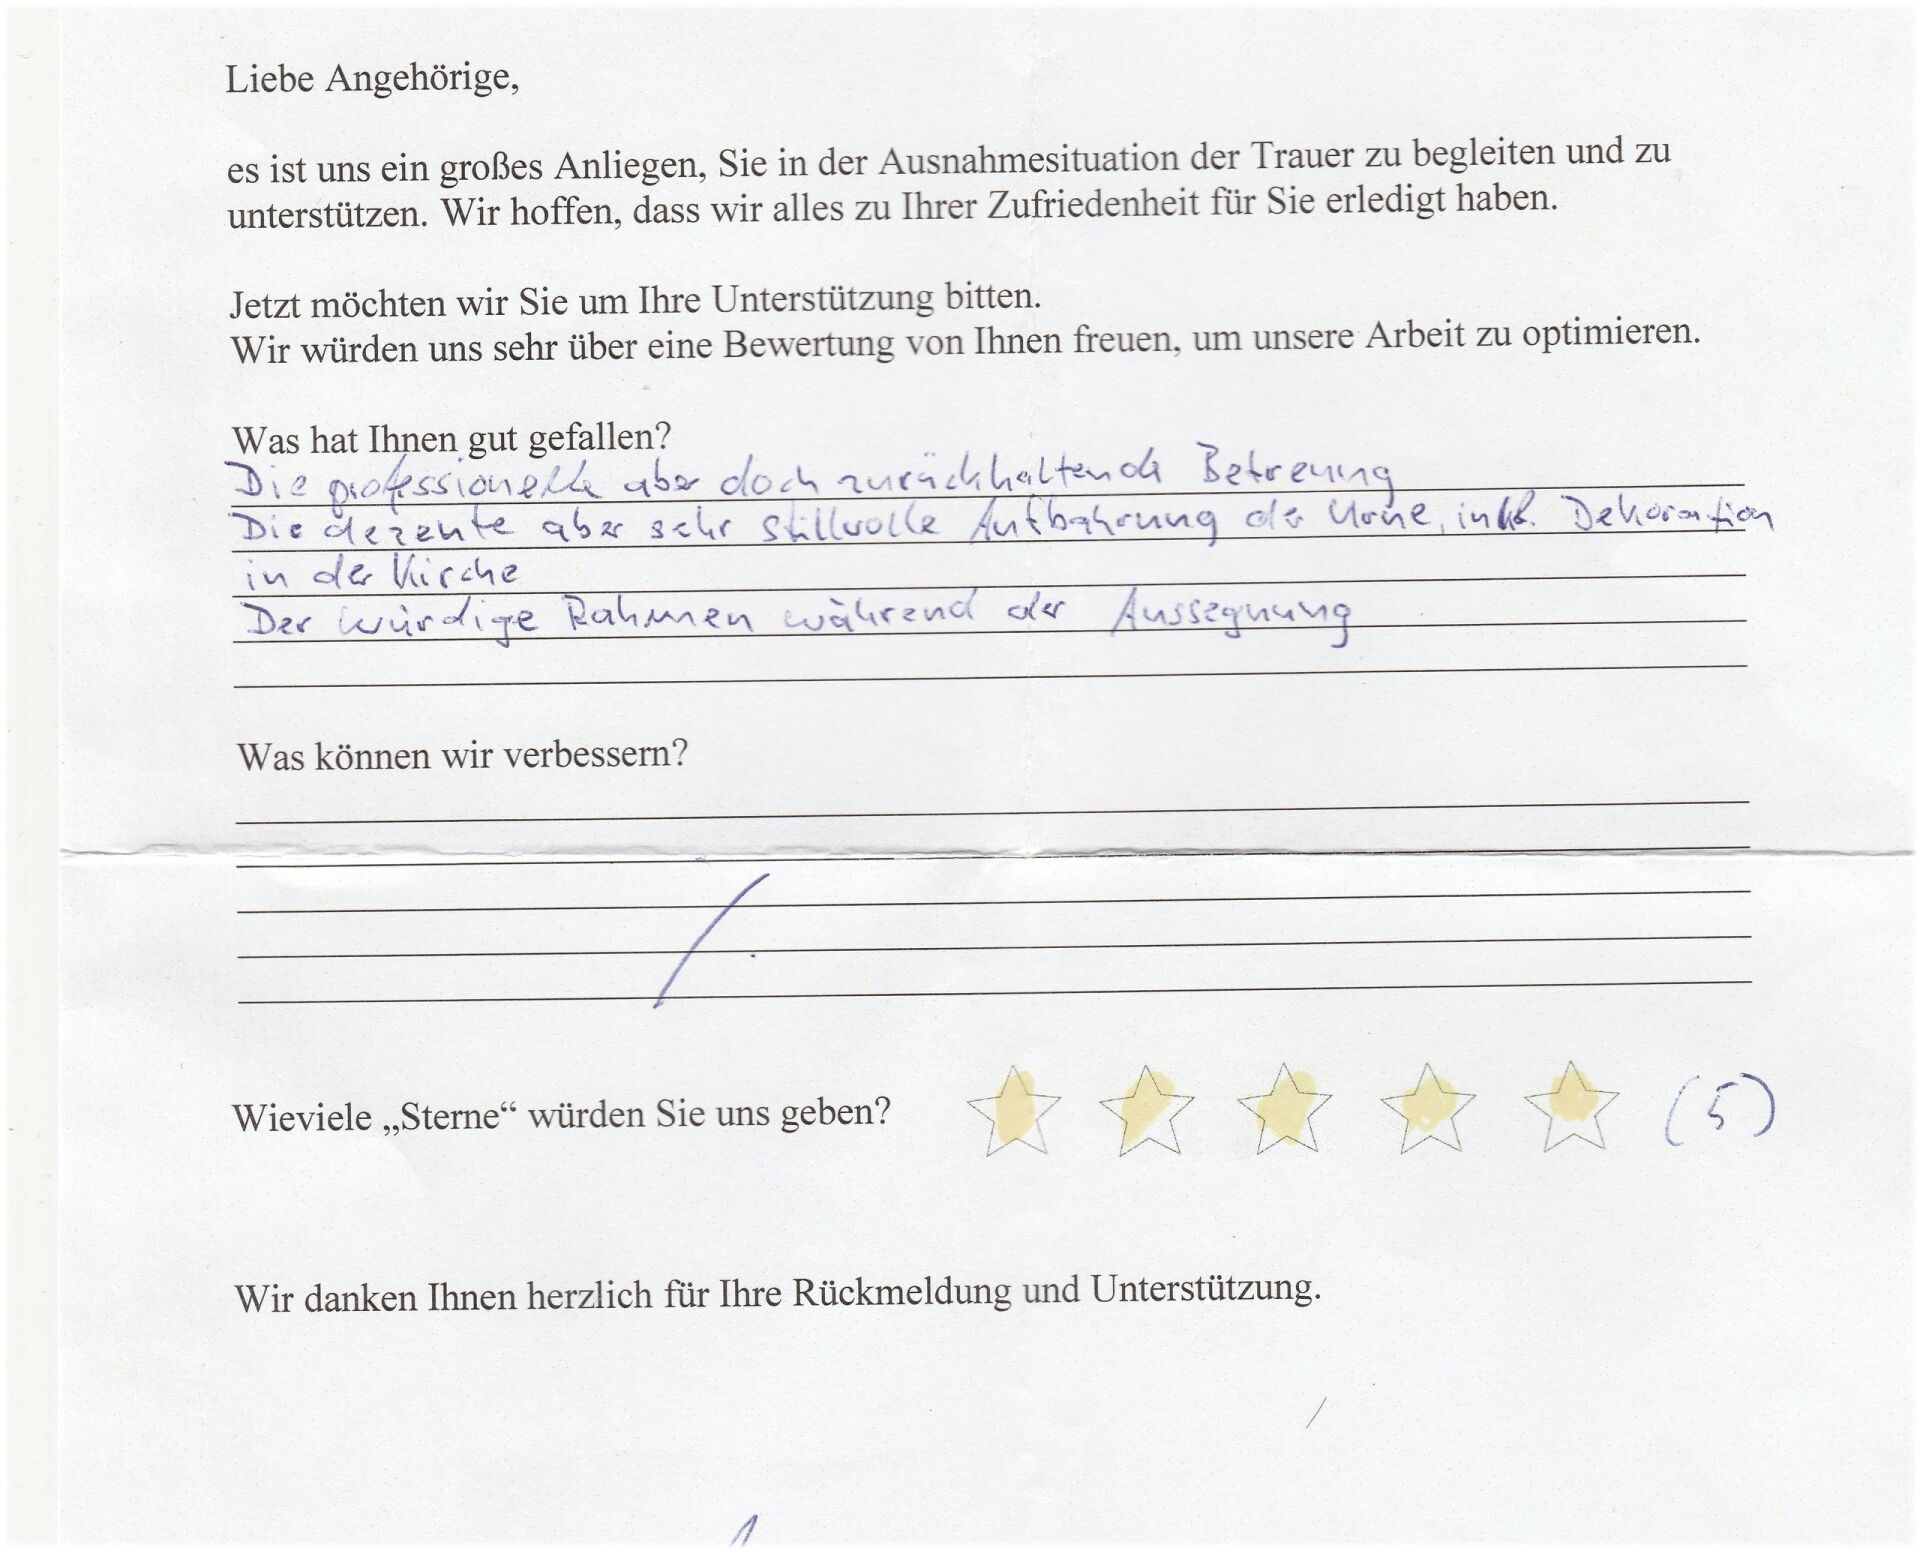 Liebe Angehörige,
es ist uns ein großes Anliegen, Sie in der Ausnahmesituation der Trauer zu begleiten und zu
unterstützen. Wir hoffen, dass wir alles zu Ihrer Zufriedenheit für Sie erledigt haben.
Jetzt möchten wir Sie um Ihre Unterstützung bitten.
Wir würden uns sehr über eine Bewertung von Ihnen freuen, um unsere Arbeit zu optimieren.
Was hat Ihnen gut gefallen?
Die professionelle aber doch zurückhaltende Betreuung
Die dezente aber sehr stillvolle Aufbahrung der Urne, inkl. Dekoration
in der Kirche
Der würdige Rahmen während der Aussegnung
Was können wir verbessern?
/.
Wieviele „Sterne“ würden Sie uns geben? (5)
Wir danken Ihnen herzlich für Ihre Rückmeldung und Unterstützung.